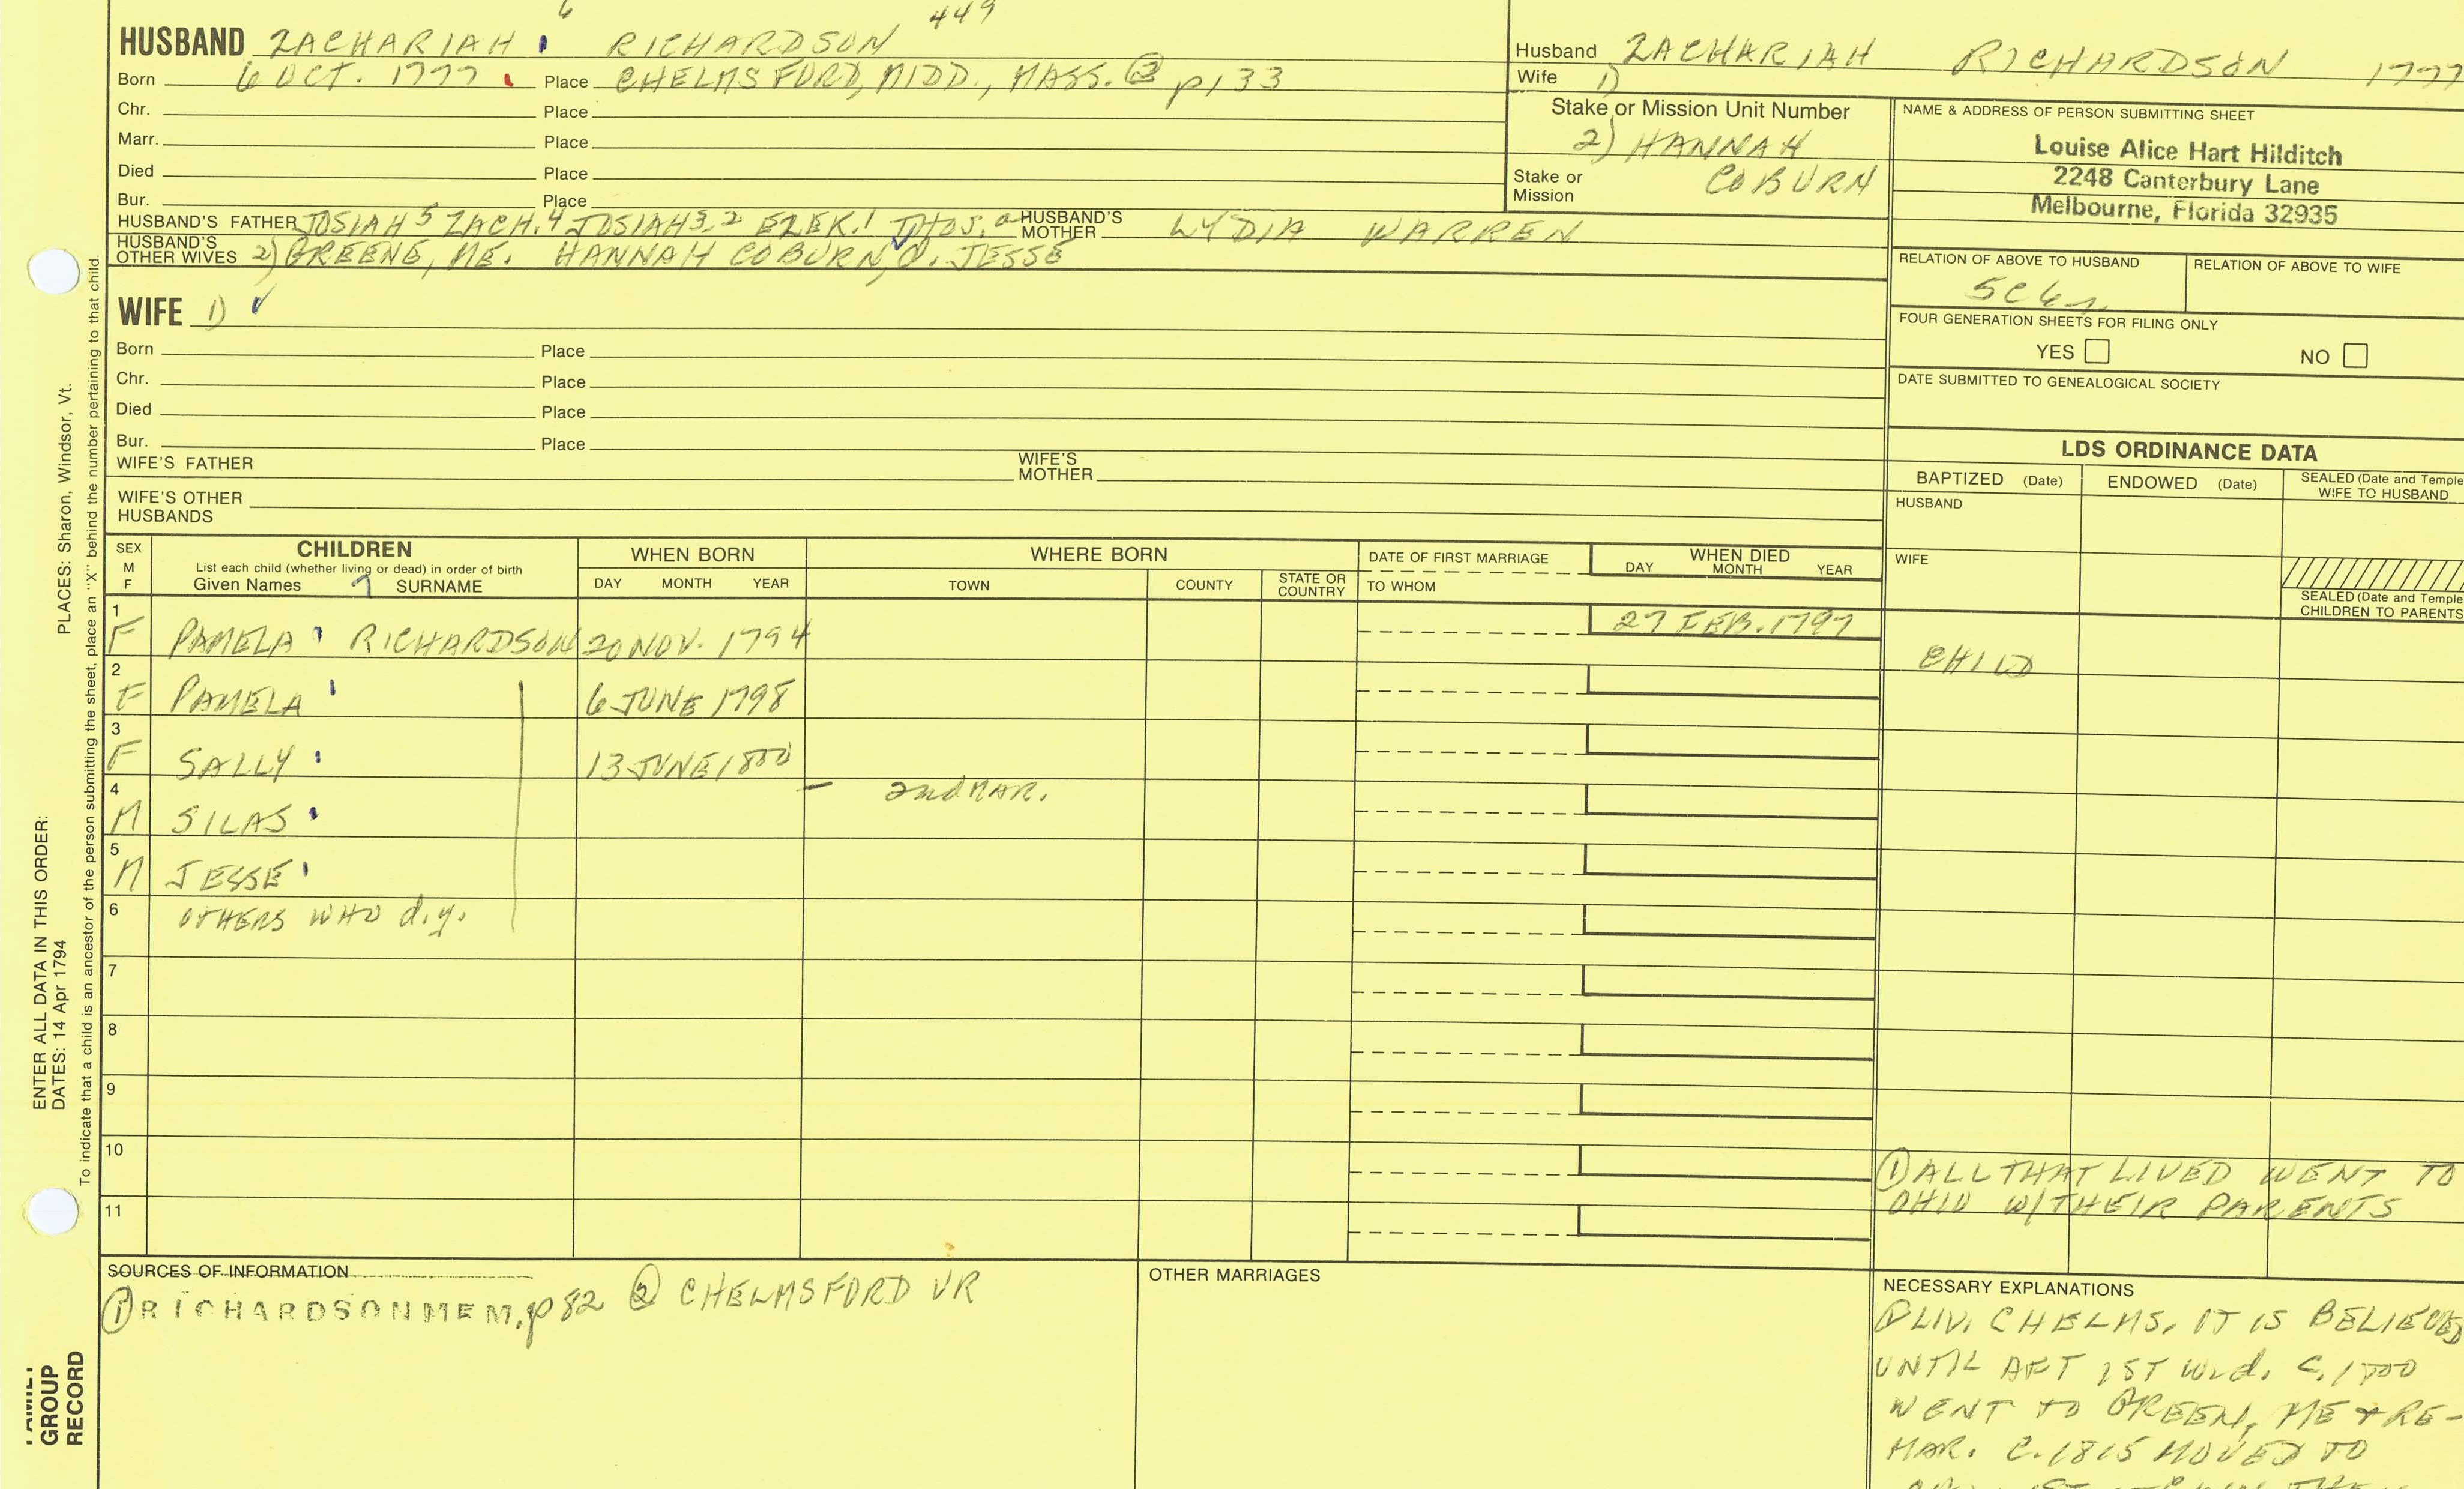 6
449
HUSBAND ZACHARIAH RICHARDSON
Born 6 OCT. 1777 Place CHELMSFORD, MIDD., MASS. ② p133
Chr. Place
Marr. Place
Died Place
Bur. Place
HUSBAND'S FATHER JOSIAH 5 ZACH. 4 JOSIAH 3, 2 EZEK. 1 THOS. a HUSBAND'S MOTHER LYDIA WARREN
HUSBAND'S OTHER WIVES 2) GREENE, ME. HANNAH COBURN, d. JESSE
Husband ZACHARIAH RICHARDSON 1777
Wife 1)
Stake or Mission Unit Number
2) HANNAH
Stake or Mission COBURN
NAME & ADDRESS OF PERSON SUBMITTING SHEET
Louise Alice Hart Hilditch
2248 Canterbury Lane
Melbourne, Florida 32935
RELATION OF ABOVE TO HUSBAND RELATION OF ABOVE TO WIFE
FOUR GENERATION SHEETS FOR FILING ONLY
YES NO
DATE SUBMITTED TO GENEALOGICAL SOCIETY
WIFE 1)
Born Place
Chr. Place
Died Place
Bur. Place
WIFE'S FATHER WIFE'S MOTHER
WIFE'S OTHER HUSBANDS
LDS ORDINANCE DATA
BAPTIZED (Date) ENDOWED (Date) SEALED (Date and Temple
WIFE TO HUSBAND
HUSBAND
WIFE
SEALED (Date and Temple
CHILDREN TO PARENTS
SEX M F CHILDREN WHEN BORN WHERE BORN DATE OF FIRST MARRIAGE WHEN DIED
List each child (whether living or dead) in order of birth
Given Names 7 SURNAME DAY MONTH YEAR TOWN COUNTY STATE OR COUNTRY TO WHOM DAY MONTH YEAR
1 F PAMELA RICHARDSON 20 NOV. 1794 27 FEB. 1797 CHILD
2 F PAMELA 6 JUNE 1798
3 F SALLY 13 JUNE 1800
4 M SILAS – 2nd MAR.
5 M JESSE
6 OTHERS WHO d.y.
7
8
9
10
11
① ALL THAT LIVED WENT TO
OHIO W/THEIR PARENTS
SOURCES OF INFORMATION
① RICHARDSON MEM. p 82 ② CHELMSFORD VR
OTHER MARRIAGES
NECESSARY EXPLANATIONS
① LIV. CHELMS. IT IS BELIEVED
UNTIL AFT 1ST w.d. C. 1800
WENT TO GREEN, ME & RE-
MAR. C. 1815 MOVED TO
PLACES: Sharon, Windsor, Vt.
ENTER ALL DATA IN THIS ORDER:
DATES: 14 Apr 1794
To indicate that a child is an ancestor of the person submitting the sheet, place an "X" behind the number pertaining to that child.
FAMILY
GROUP
RECORD